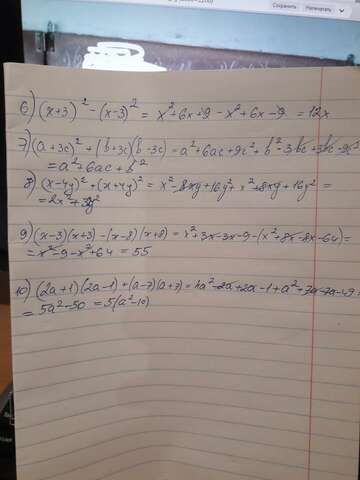 Сохранить Напечатать
6) (x+3)² - (x-3)² = x²+6x+9 - x²+6x-9 = 12x
7) (a+3c)² + (b+3c)(b-3c) = a²+6ac+9c²+b²-3bc+3bc-9c²
= a²+6ac+b²
8) (x-4y)² + (x+4y)² = x²-8xy+16y²+x²+8xy+16y² =
= 2x²+32y²
9) (x-3)(x+3) - (x-8)(x+8) = x²+3x-3x-9-(x²+8x-8x-64) =
= x²-9-x²+64 = 55
10) (2a+1)(2a-1) + (a-7)(a+7) = 4a²-2a+2a-1+a²+7a-7a-49 =
= 5a²-50 = 5(a²-10)